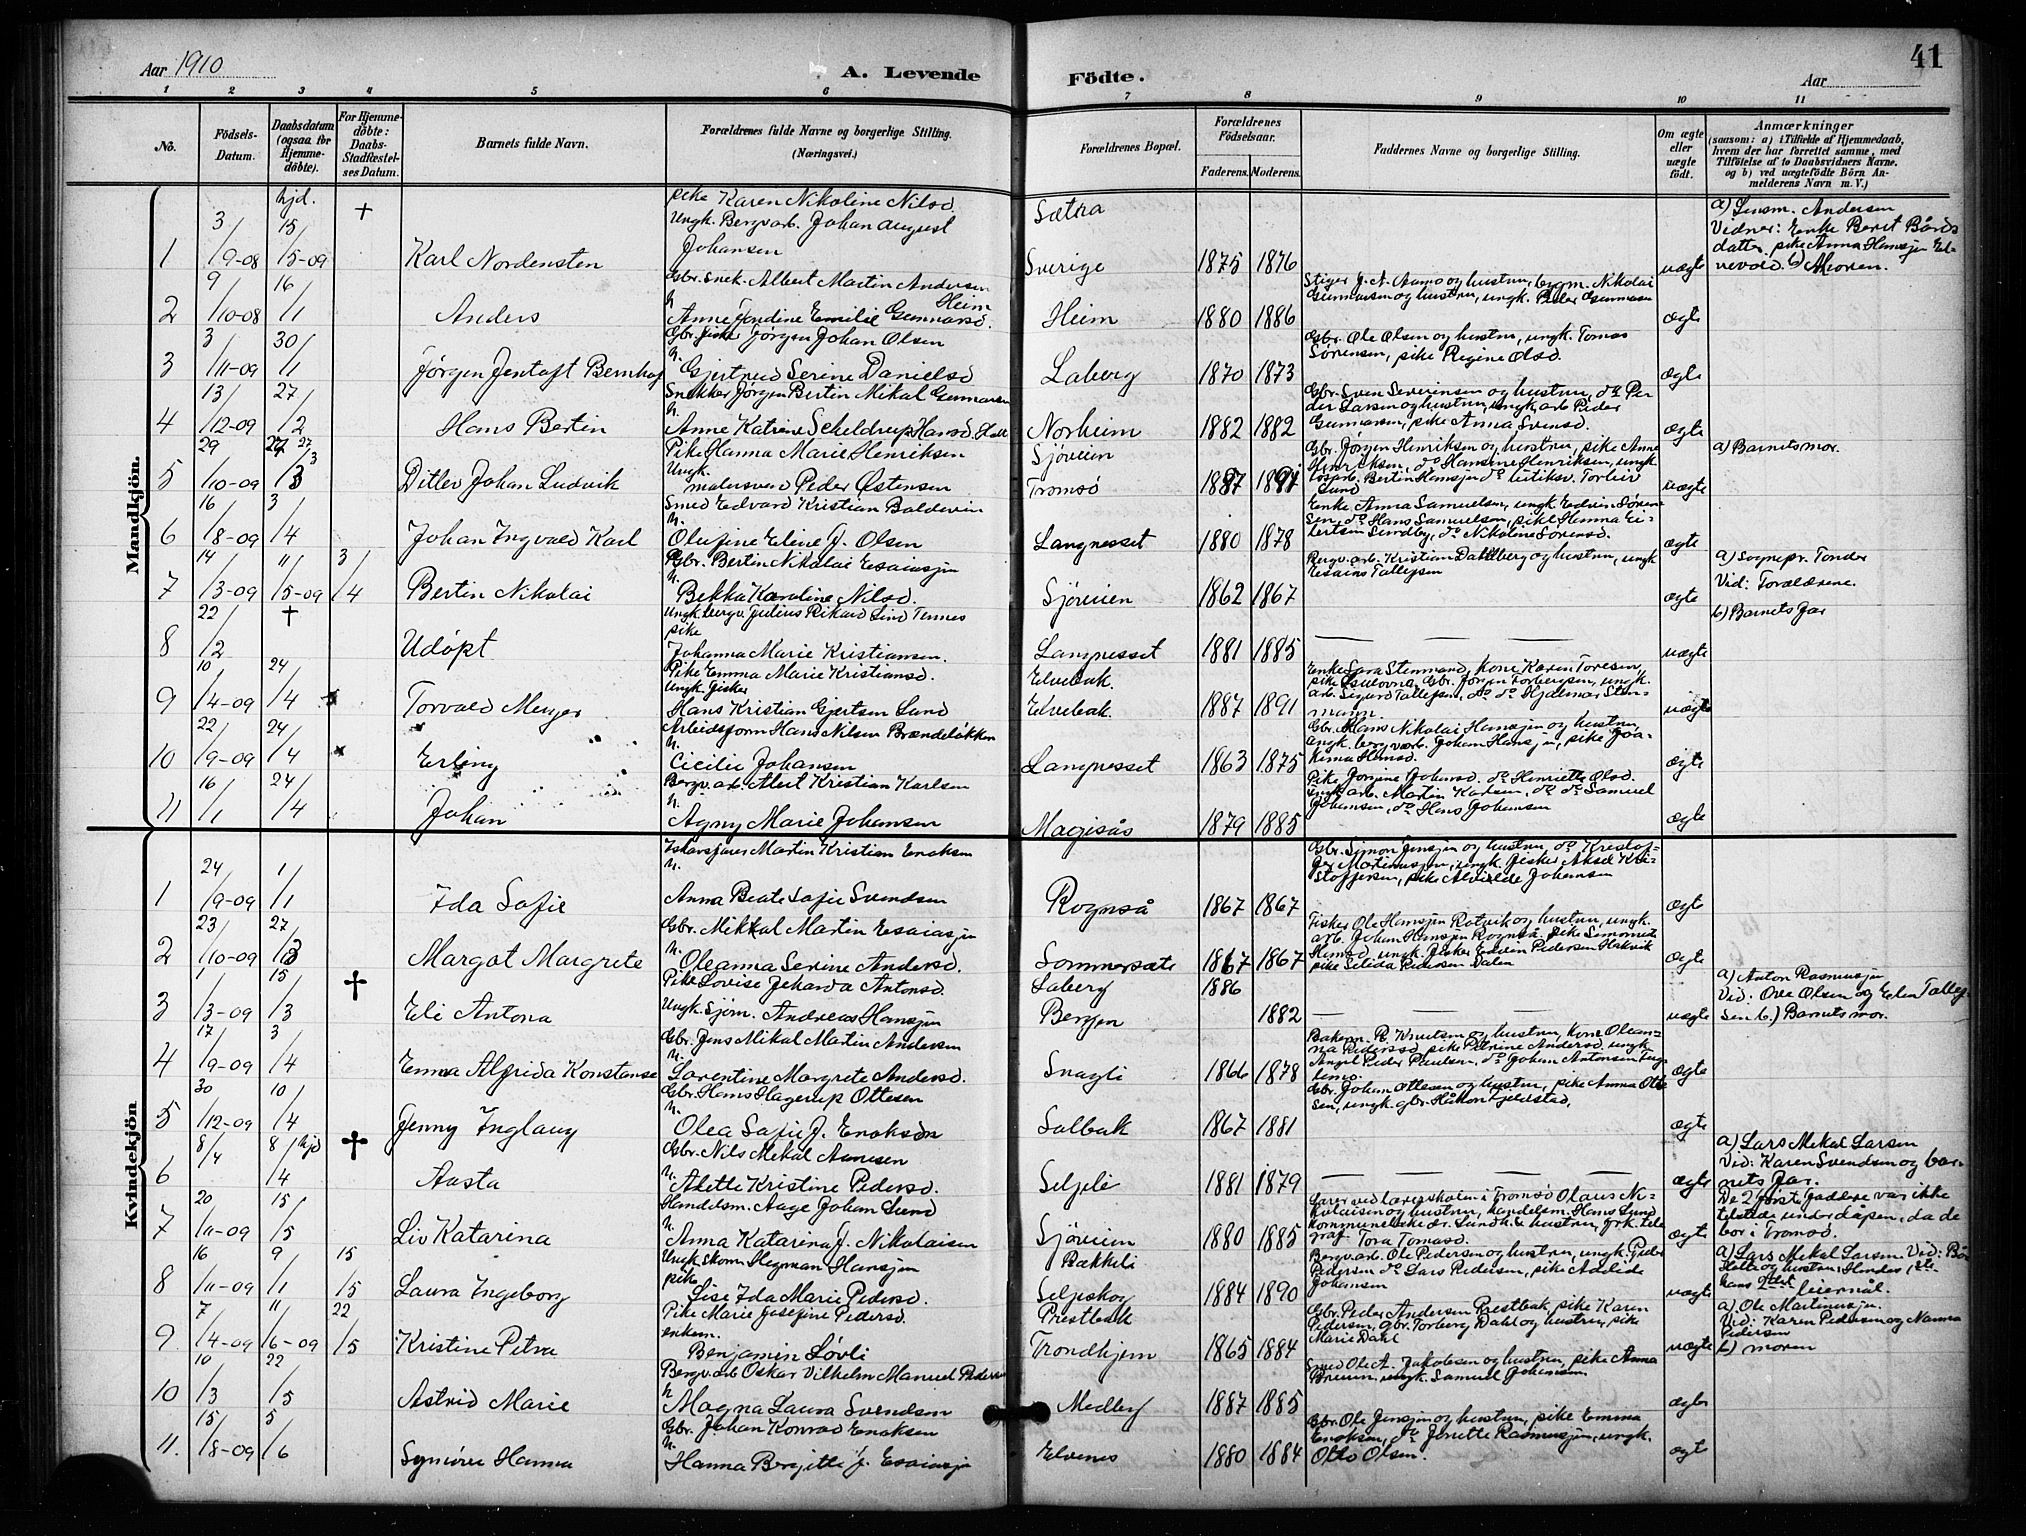 Aar 1910
A. Levende Födte.
Aar
41
1 2 3 4 5 6 7 8 9 10 11
No.
Födsels-Datum.
Daabsdatum (ogsaa for Hjemmedöbte).
For Hjemmedöbte: Daabs-Stadfæstelses Datum.
Barnets fulde Navn.
Forældrenes fulde Navne og borgerlige Stilling. (Næringsvei.)
Forældrenes Bopæl.
Forældrenes Födselsaar.
Faderens. Moderens.
Faddernes Navne og borgerlige Stilling.
Om ægte eller uægte födt.
Anmærkninger
(saasom: a) i Tilfælde af Hjemmedaab, hvem der har forrettet samme, med Tilföielse af to Daabsvidners Navne. og b) ved uægtefödte Börn Anmelderens Navn m. V.)
Mandkjön.
1 3/9-08 hjd. 15/5-09 † Karl Nordensten
pike Karen Nikoline Nilsd.
Ungk. Bergvarb. Johan August
Johansen
Sætra
Sverige 1875 1876 uægte
a) Lensm. Andersen
Vidner: Enke Berit Bårds
datter, pike Anna Hansjen El-
vevold. b) Moren.
2 9/10-08 16/1 Anders
Gbr. snek. Albert Martin Andersen
Heim
h. Anne Jendine Emilie Gunnarsd.
Heim 1880 1886
Stiger J. A. Aamo og hustru, bygm. Nikolai
Gunnarsen og hustru, ungk. Peder Gunnarsen
ægte
3 3/11-09 30/1 Jørgen Jentoft Bernhof
Gbr. fisker Jørgen Johan Olsen
h. Gjertrud Serine Danielsd
Laberg 1870 1873
Gbr. Ole Olsen og hustru, ungk. Tomas
Sørensen, pike Regine Olsd.
ægte
4 13/12-09 27/2 Hans Bertin
Snekker Jørgen Bertin Mikal Gunnarsen
h. Anne Katrine Scheldrup Hansd.
Norheim 1882 1882
Gbr. Sven Severinsen og hustru, do Pe-
der Larsen og hustru, ungk. arb. Peder
Gunnarsen, pike Anna Svensd.
ægte
5 29/10-09 27/3 Ditlev Johan Ludvik
Pike Hanna Marie Henriksen
Ungk.
malersvend Peder Østensen
Sjøveien
Tromsø 1887 1891
Gbr. Jørgen Henriksen og hustru, pike Anne
Henriksen, do Hansine Henriksen, ungk.
Bertin Hansjen do butikbr. Torleif
Lund
uægte
a) Barnets mor.
6 16/8-09 3/4 Johan Ingvald Karl
Smed Edvard Kristian Baldevin
h.
Olufine Eline J. Olsen
Langnesset 1880 1878
Enke Anna Samuelsen, ungk. Edvin Søren-
sen, do Hans Samuelsen, pike Hanna Ei-
lertsen Sundby, do Nikoline Sørensd.
ægte
7 14/3-09 11/5-09 3/4 Bertin Nikolai
Gbr. Bertin Nikolai Esaiasjen
h.
Bekka Karoline Nilsd.
Sjøveien 1862 1867
Bergv. arb. Kristian Dahlberg og hustru, ungk
Esaias Tallejsen
ægte
a) Sognepr. Tonder
Vid: Forældrene.
8 22/2 † Udöpt
Ungk. bergv. Julius Rikard Lind Tennes
pike
Johanna Marie Kristiansen.
Langnesset 1881 1885 — — — uægte
b) Barnets far
9 10/4-09 24/4 Torvald Meyer
Pike Emma Marie Kristiansd.
Ungk. fisker
Hans Kristian Gjertsen Lund
Elvebak.
Elvebak. 1887 1891
Enke Sara Stenmand, kone Karen Toresen,
pike Gbr. Jørgen Torbergsen, ungk.
arb. Sigurd Tallejsen, do do Hjalmar Sten-
mann.
uægte
10 22/9-09 24/4 Erling
Arbeidsform Hans Nilsen Brændeløkken
h.
Cicilie Johansen
Langnesset 1863 1875
Gbr. Hans Nikolai Hansjen og hustru,
ungk. bergv. arb. Johan Hansjen, pike Joa-
kima Hansd.
ægte
11 16/1 24/4 Johan
Bergv. arb. Albert Kristian Karlsen
h.
Agny Marie Johansen
Magisås 1879 1885
Pike Jørgine Johansd. do Henriette Olsd.
ungk arb. Martin Karlsen, do do Samuel
Johansen, do Hans Johansen
ægte
Kvindekjön
1 24/9-09 1/1 Ida Sofie
Martin Kristian Enoksen
h.
Anna Beate Sofie Svendsen
Rognså 1867 1867
Gbr. Simon Jensjen og hustru, do Kristof-
fer Martinusjen, ungk. fisker Aksel Kri-
stoffersen, pike Alvilde Johansen
ægte
2 23/10-09 27/3 Margot Margrete
Gbr. Mikkal Martin Esaiasjen
h.
Oleanna Serine Andersd.
Sommersæte 1867 1867
Fisker Ole Hansjen Rotvik og hustru, ungk.
arb. Johan Hansjen Rognså, pike
Hansd, ungk. fisker Edvin Pedersen Hakvik
pike Pedersen Dalen
ægte
3 1/3-09 15/3 † Eli Antona
Pike Lovise Jeharda Antonsd.
Ungk. Sjöm. Andreas Hansjen
Laberg 1886
Bergen 1882 — — — uægte
a) Anton Rasmusjen
Vid: Ove Olsen og Eden Tallej-
sen b.) Barnets mor.
4 17/9-09 3/4 Emma Alfrida Konstanse
Gbr. Jens Mikal Martin Andersen
h.
Lorentine Margrete Andersd.
Snagli 1866 1878
Bakerm. R. Knutsen og hustru, kone Olean-
na Pedersd, pike Petrine Andersd, ungk
Angel Peder Paulsen, do Johan Antonsen
ægte
5 30/12-09 10/4 Jenny Inglaug
Gbr. Hans Hagerup Ottesen
h.
Olea Sofie J. Enoksen
Solbak 1867 1881
Gbr. Johan Ottesen og hustru, pike Anna Otte
sen, ungk. gbr. Håkon Fjeldstad,
ægte
6 8/4 8/4 hjd † Aasta
Gbr. Nils Mekal Aanesen
h.
Alette Kristine Pedersd.
Seljeli 1881 1879 — — — ægte
a) Lars Mekal Larsen
Vid: Karen Svendsen og bar-
nets far.
7 20/11-09 15/5 Liv Katarina
Handelsm. Aage Johan Lund
h.
Anna Katarina J. Nikolaisen
Sjøveien 1880 1885
Lærer ved lærerskolen i Tromsø Olaus Ni-
kolaisen og hustru, handelsm. Hans Lund
kommunelæke dr. Lundh & hustru, frk. tele
graf. Tora Tomasd.
ægte
De 2 første faddere var ikke
tilstede under dåpen, da de
bor i Tromsø.
8 16/11-09 9/1 15/5 Laura Ingeborg
Ungk. skom. Hegman Hansjen
pike
Lise Ida Marie Pedersd.
Bakkeli
Seljeskog 1884 1890
Bergv. arb. Ole Pedersen og hustru, ungk. Peder
Pedersen do Lars Pedersen, pike Adelide
Johansen
uægte
a) Lars Mekal Larsen Vid: Bår
Holte og hustru,
hans 2det leiermål.
9. 7/4-09 11/6-09 22/5 Kristine Petra
Pike Marie Josefine Pedersd.
enkem.
Benjamin Løvli
Prestbak
Trondhjem 1865 1884
Gbr. Peder Andersen Prestbak, pike Karen
Pedersen, gbr. Torberg Dahl og hustru, pike
Marie Dahl
uægte
a) Ole Martinusjen.
Vid: Karen Pedersen og Nanna
Pedersen
b) moren
10 10/3 22/5 Astrid Marie
Bergv. arb Oskar Vilhelm Manuel Pedersen
h
Magna Laura Svendsen
Medby 1887 1885
Smed Ole A. Jakobsen og hustru, pike Anna
Breun, ungk. Samuel Johansen
ægte
11. 15/8-09 5/6 Synnöve Hanna
Gbr. Johan Konrad Enoksen
h.
Hanna Bergitte J. Esaiasjen
Elvenes 1880 1884
Gbr. Ole Jensjen og hustru, pike Emma
Enoksen, do Jenette Rasmusjen, ungk.
Otto Olsen.
ægte